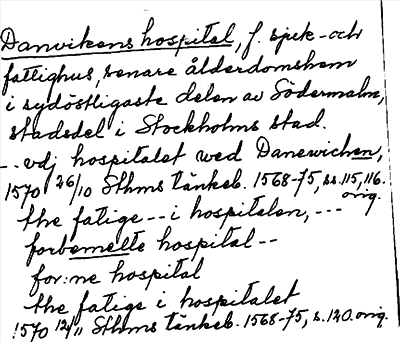 Danvikens hospital, f. sjuk- och
fattighus, senare ålderdomshem
i sydöstligaste delen av Södermalm,
stadsdel i Stockholms stad.
-- vdj hospitalet wed Danewichen,
1570 26/10 Sthms tänkeb. 1568-75, ss. 115, 116.
orig.
the fatige -- i hospitalen, ---
forbemelte hospital --
for:ne hospital
the fatige i hospitalet
1570 12/11 Sthms tänkeb. 1568-75, s. 120. orig.